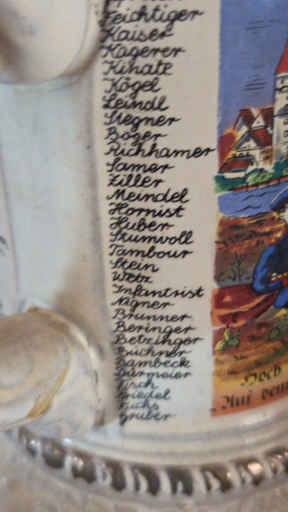 Feichtiger
Kaiser
Kagerer
Kinate
Kögel
Leindl
Stegner
Böger
Richhamer
Samer
Ziller
Meindel
Hornist
Huber
Stumvoll
Tambour
Stein
Welz
Infantrist
Aigner
Brunner
Beringer
Betzinger
Büchner
Dambeck
Fisch
Friedel
Fuchs
Gruber
Hoch
Auf